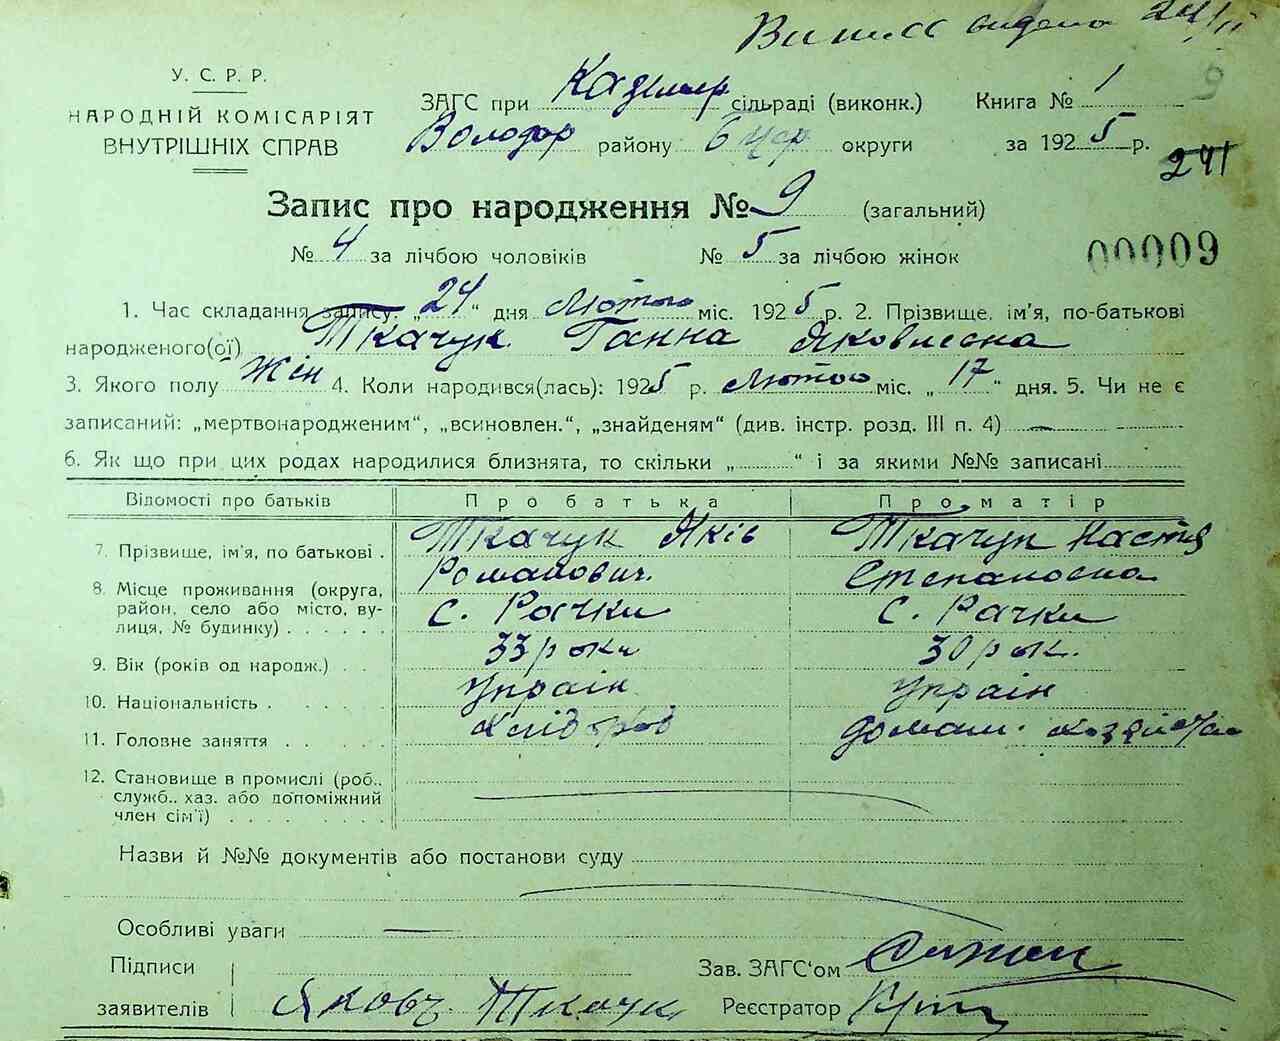 Виписк видана 24/II
9
У. С. Р. Р.
НАРОДНІЙ КОМІСАРІЯТ
ВНУТРІШНІХ СПРАВ
ЗАГС при Казимир сільраді (виконк.) Книга № 1
Володар району Б Цер округи за 1925 р.
241
Запис про народження № 9 (загальний)
№ 4 за лічбою чоловіків № 5 за лічбою жінок
00009
1. Час складання запису: „24“ дня Лютого міс. 1925 р. 2. Прізвище, ім'я, по-батькові
народженого(ої) Ткачук Ганна Яковлевна
3. Якого полу Жін 4. Коли народився(лась): 1925 р. Лютого міс. „17“ дня. 5. Чи не є
записаний: „мертвонародженим“, „всиновлен.“, „знайденям“ (див. інстр. розд. III п. 4)
6. Як що при цих родах народилися близнята, то скільки „ “ і за якими №№ записані
Відомості про батьків Про батька Про матір
7. Прізвище, ім'я, по батькові . Ткачук Яків Ткачук Настя
Романович. Степановна
8. Місце проживання (округа,
район, село або місто, ву-
лиця, № будинку) . . . . . . с. Рачки с. Рачки
9. Вік (років од народж.) . . 33 роки 30 рок.
10. Національність . Украін Украін
11. Головне заняття . . . . . Хлібороб домаш.
12. Становище в промислі (роб.,
служб., хаз. або допоміжний
член сім'ї) . . . . . . . .
Назви й №№ документів або постанови суду
Особливі уваги
Підписи
заявителів Яковъ Ткачук
Зав. ЗАГС'ом
Реєстратор